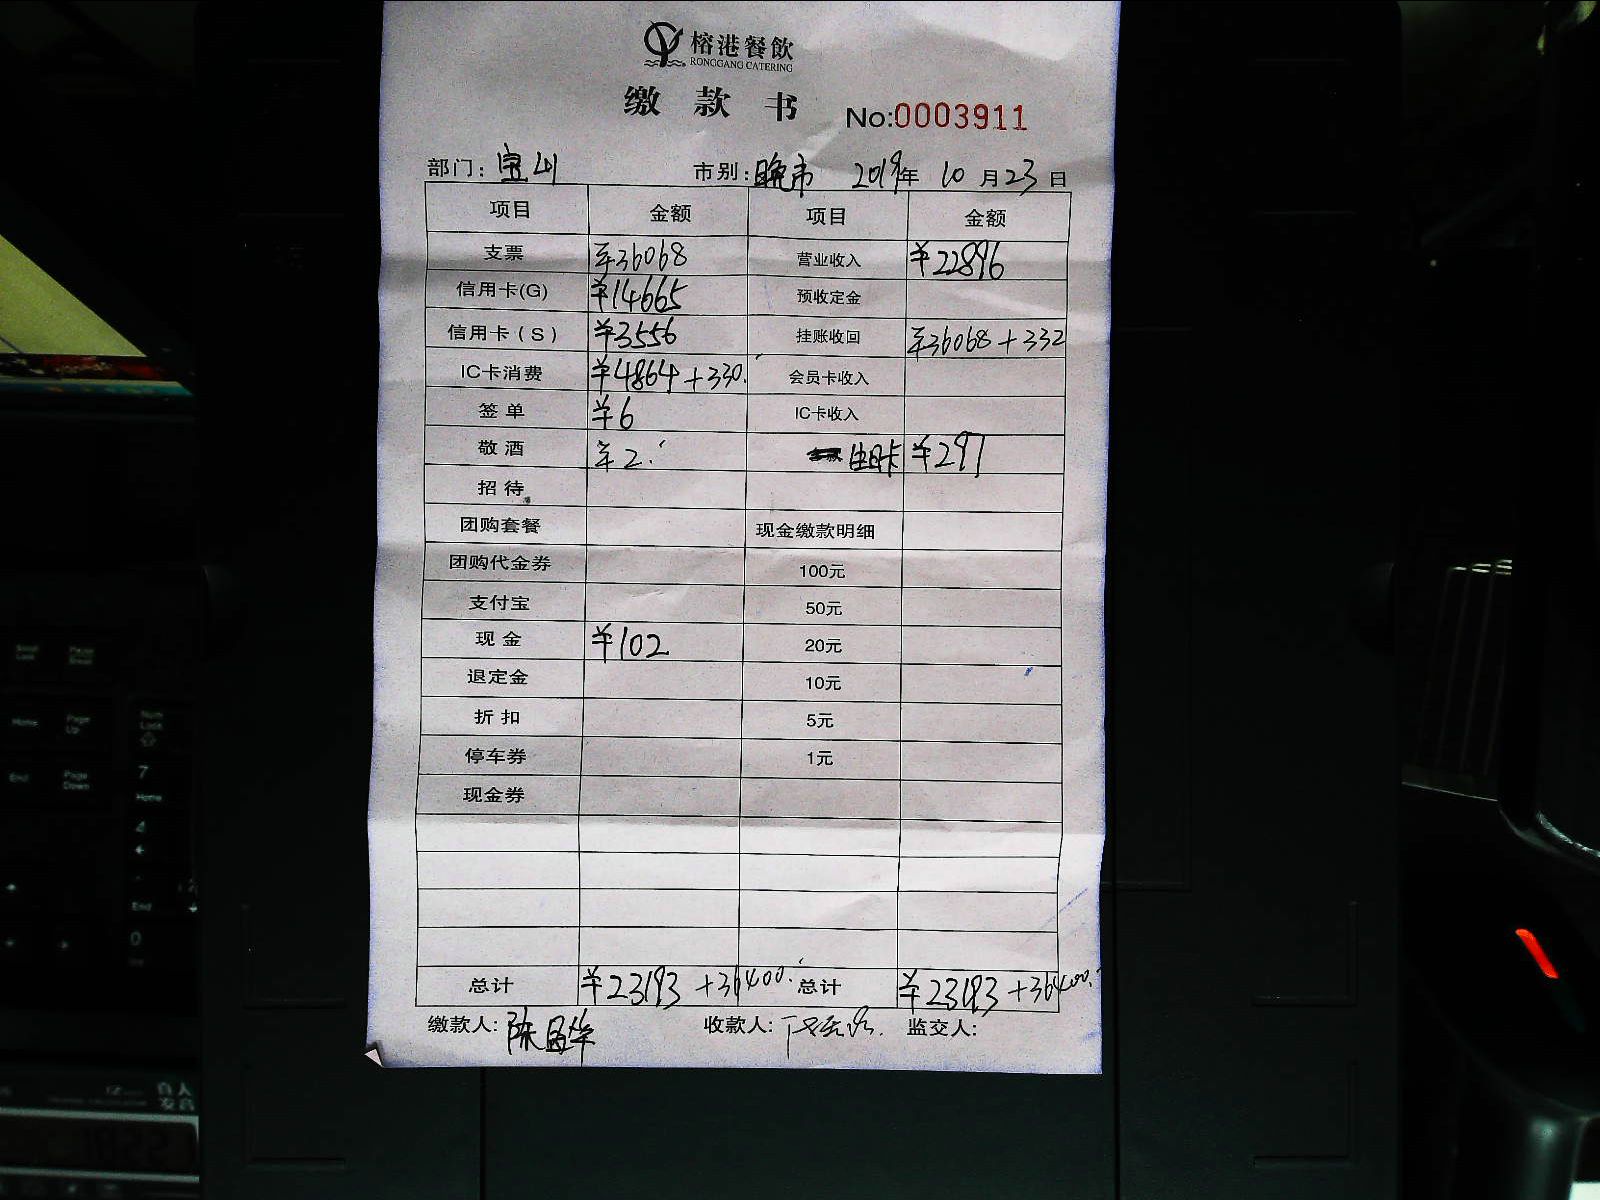 榕港餐飲
RONGGANG CATERING
缴款书 No:0003911
部门: 宝山 市别: 晚市 2019年 10月23日
项目 金额 项目 金额
支票 ¥36068 营业收入 ¥22896
信用卡(G) ¥14665 预收定金
信用卡(S) ¥3556 挂账收回 ¥36068+332
IC卡消费 ¥4864+330. 会员卡收入
签单 ¥6 IC卡收入
敬酒 ¥2. ¥297
招待
团购套餐 现金缴款明细
团购代金券 100元
支付宝 50元
现金 ¥102 20元
退定金 10元
折扣 5元
停车券 1元
现金券
总计 ¥23193+36400. 总计 ¥23193+36400.
缴款人: 陈昌华 收款人: 监交人:
Home Page Up
End Page Down
7
Home
4
End
0